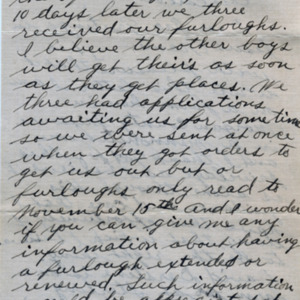 10 days later we three
received our furloughs.
I believe the other boys
will get their's as soon
as they get places. We
three had applications
awaiting us for sometime
so we were sent at once
when they got orders to
get us out but or
furloughs only read to
November 15th and I wonder
if you can give me any
information about having
a furlough extended or
renewed. Such information